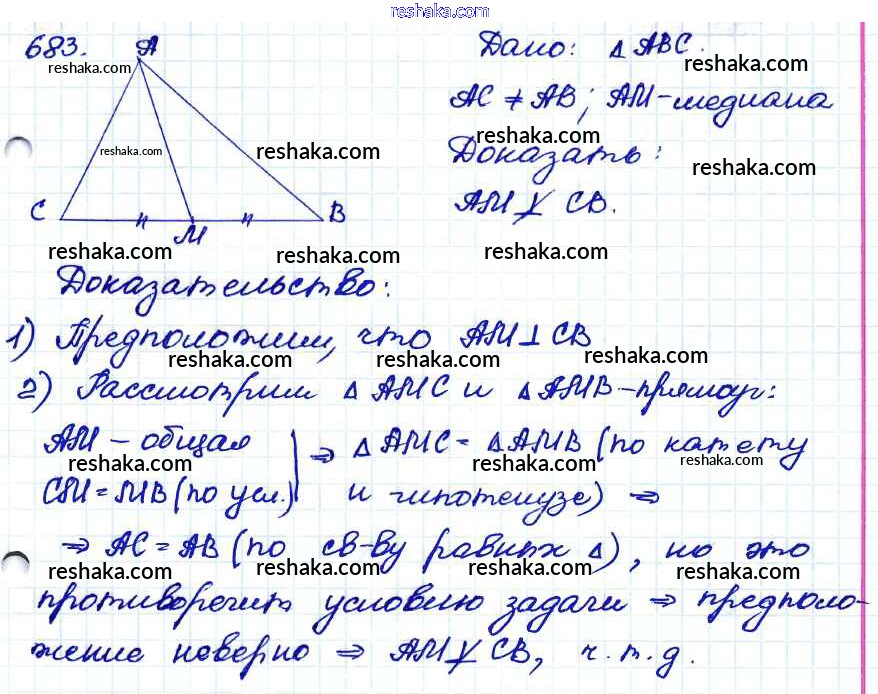 reshaka.com
683. A Дано: △ABC.
reshaka.com reshaka.com
AC ≠ AB; AM - медиана
reshaka.com
reshaka.com reshaka.com Доказать:
reshaka.com
C M B AM ⊥̸ CB.
reshaka.com reshaka.com reshaka.com
Доказательство:
1) Предположим, что AM ⊥ CB
reshaka.com reshaka.com reshaka.com
2) Рассмотрим △ AMC и △ AMB - прямоуг:
AM - общая ⇒ △ AMC = △ AMB (по катету
reshaka.com reshaka.com reshaka.com
CM = MB (по усл.) и гипотенузе) ⇒
⇒ AC = AB (по св-ву равных △), но это
reshaka.com reshaka.com reshaka.com
противоречит условию задачи ⇒ предполо-
reshaka.com reshaka.com reshaka.com
жение неверно ⇒ AM ⊥̸ CB, ч.т.д.